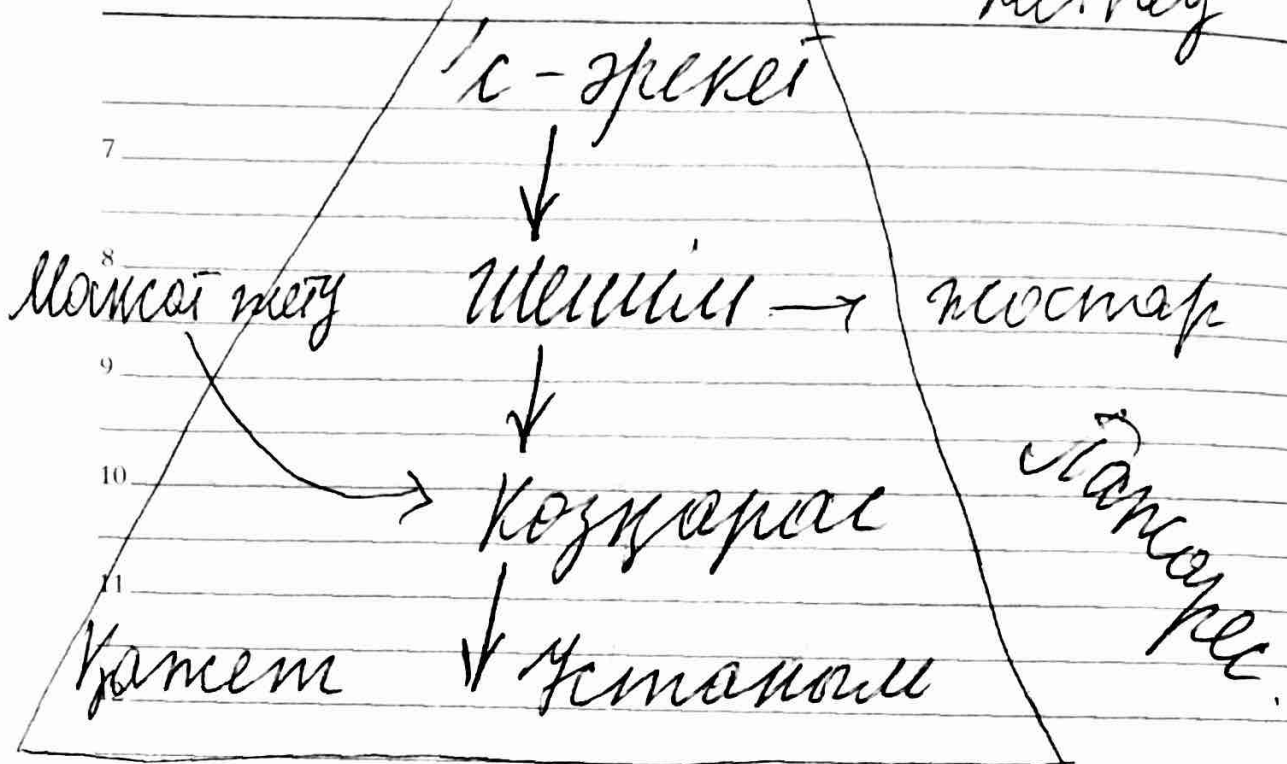 Іс-әрекет
7
8
Мақсат жету Шешім → жоспар
9
10
Көзқарас
11
Қажет Ұстаным